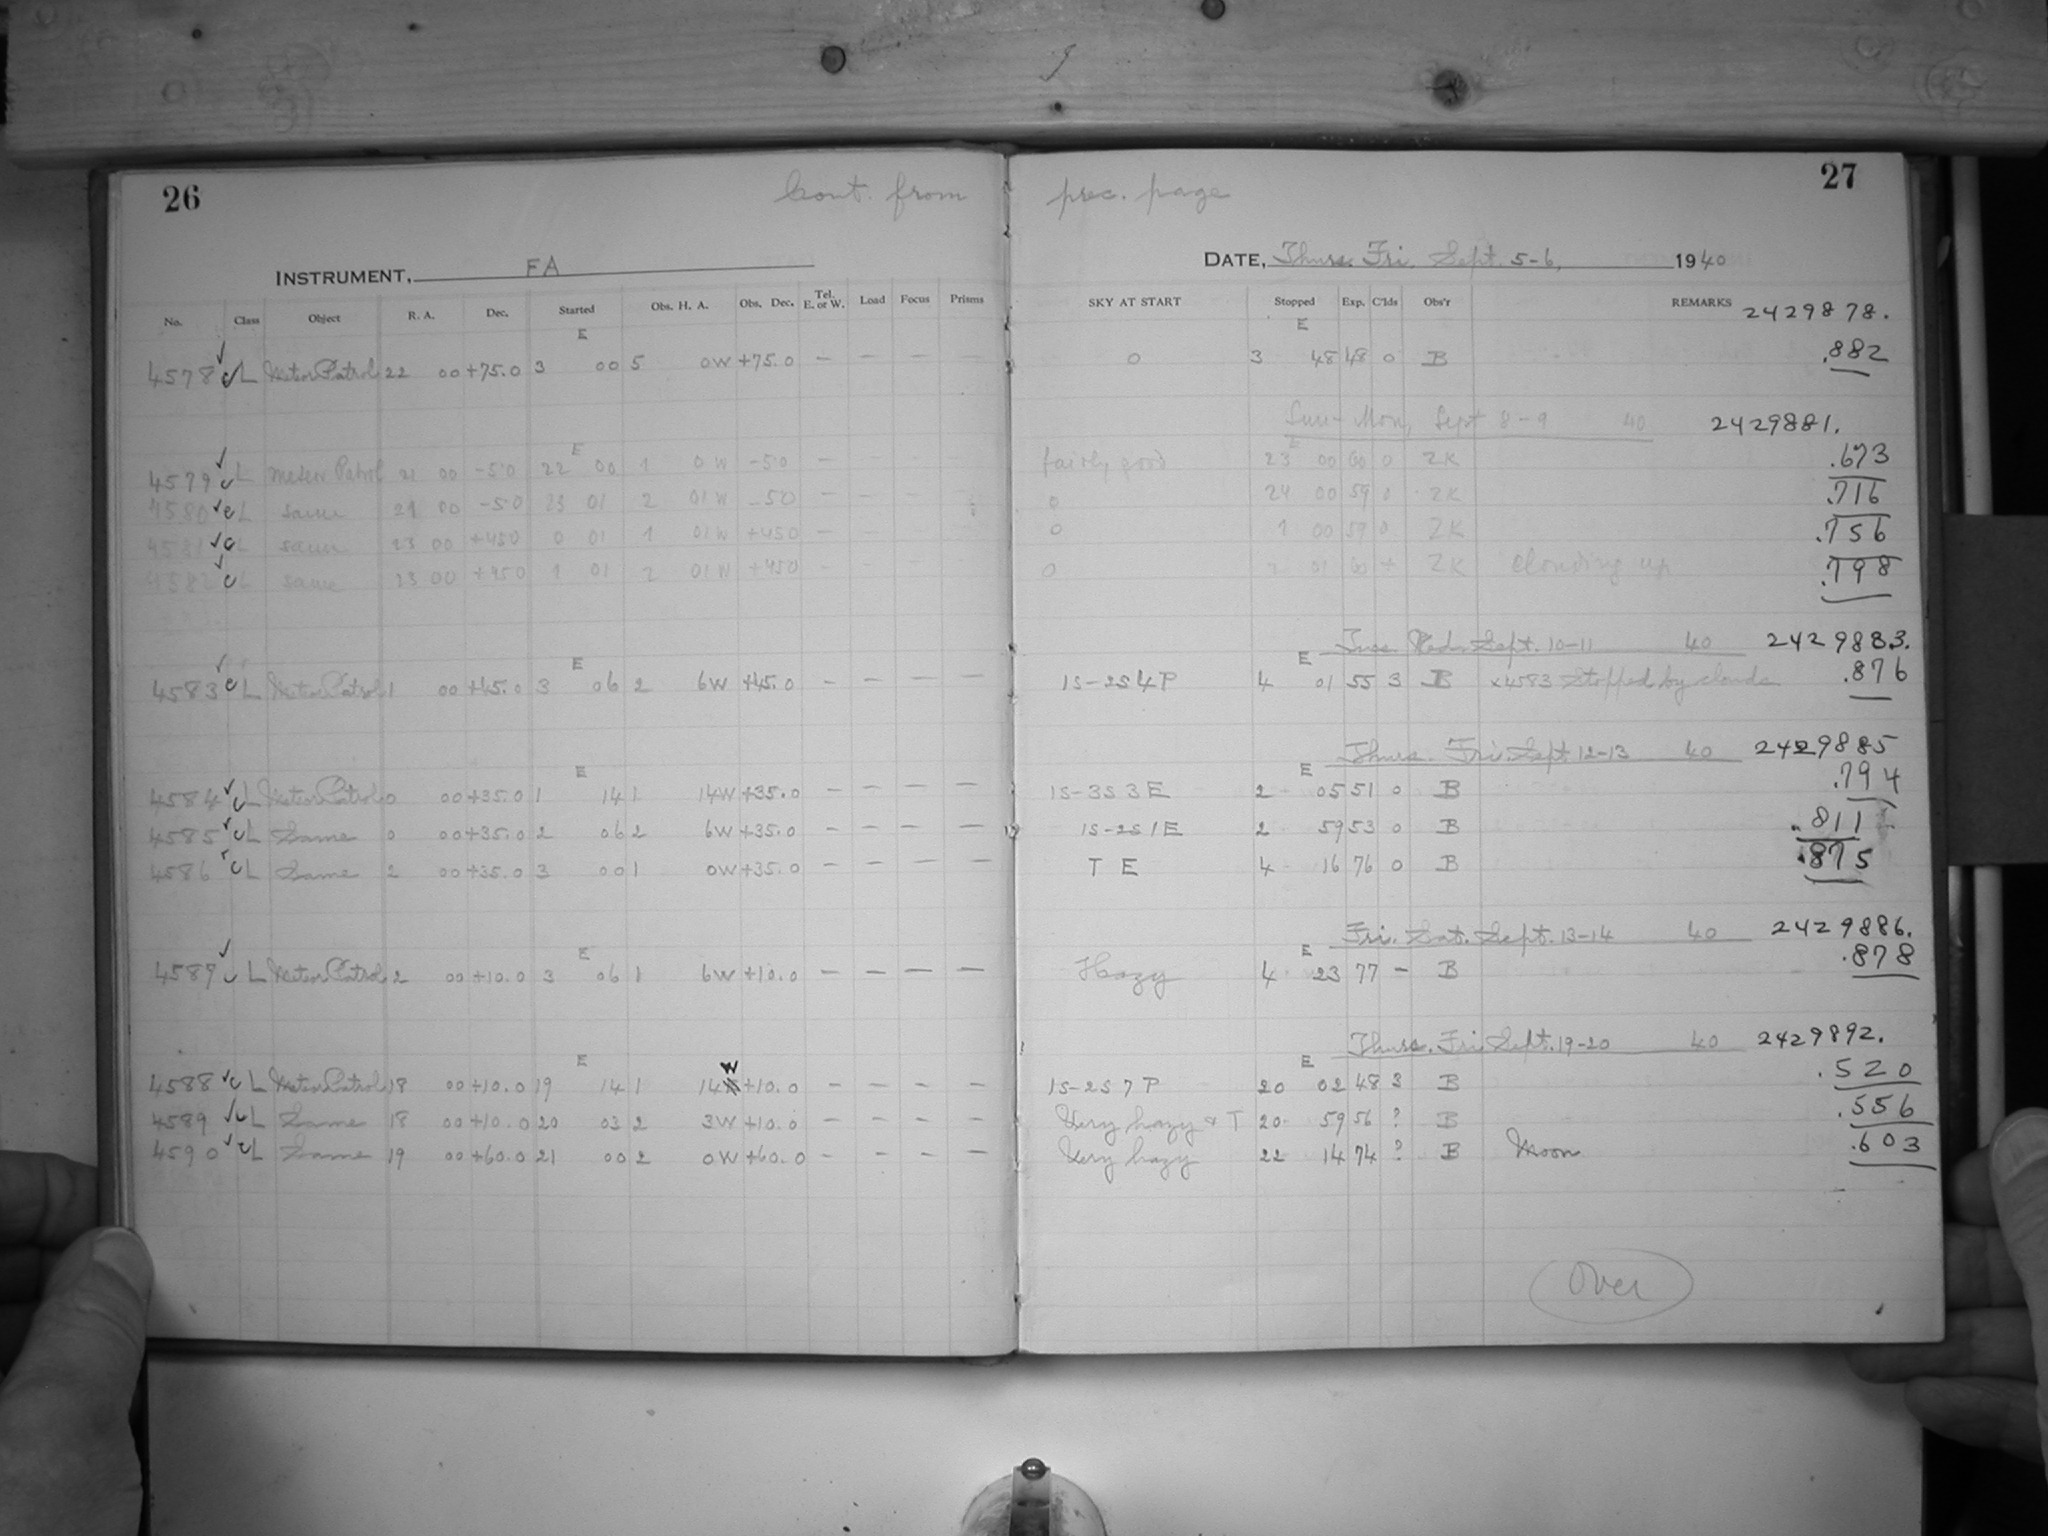 26 Cont. from prec. page 27
INSTRUMENT, FA DATE, Thurs. Fri. Sept. 5-6, 1940
No. Class Object R. A. Dec. Started Obs. H. A. Obs. Dec. Tel. E. or W. Load Focus Prisms SKY AT START Stopped Exp. C'lds Obs'r REMARKS 2429878.
E E
4578 ✓ c L Meteor Patrol 22 00 +75.0 3 00 5 0W +75.0 — — — — 0 3 48 48 0 B .882
Sun-Mon, Sept 8-9 40 2429881.
E E
4579 ✓ c L Meteor Patrol 21 00 -5.0 22 00 1 0W -5.0 — — — — fairly good 23 00 60 0 ZK .673
4580 ✓ c L same 21 00 -5.0 23 01 2 01W -50 — — — — 0 24 00 59 0 ZK .716
4581 ✓ c L same 23 00 +450 0 01 1 01W +450 — — — — 0 1 00 59 0 ZK .756
4582 ✓ c L same 23 00 +450 1 01 2 01W +450 — — — — 0 2 01 60 + ZK clouding up .798
Tues. Wed. Sept. 10-11 40 2429883.
E E
4583 ✓ c L Meteor Patrol 1 00 +45.0 3 06 2 6W +45.0 — — — — 1S-2S4P 4 01 55 3 B x4583 Stopped by clouds .876
Thurs. Fri. Sept 12-13 40 2429885
E E
4584 ✓ c L Meteor Patrol 0 00 +35.0 1 14 1 14W +35.0 — — — — 1S-3S3E 2 05 51 0 B .794
4585 ✓ c L Same 0 00 +35.0 2 06 2 6W +35.0 — — — — 1S-2S1E 2 59 53 0 B .811
4586 ✓ c L Same 2 00 +35.0 3 00 1 0W +35.0 — — — — T E 4 16 76 0 B .875
Fri. Sat. Sept. 13-14 40 2429886.
E E
4587 ✓ c L Meteor Patrol 2 00 +10.0 3 06 1 6W +10.0 — — — — Hazy 4 23 77 — B .878
Thurs. Fri Sept. 19-20 40 2429892.
E W E
4588 ✓ c L Meteor Patrol 18 00 +10.0 19 14 1 14 +10.0 — — — — 1S-2S7P 20 02 48 3 B .520
4589 ✓ c L Same 18 00 +10.0 20 03 2 3W +10.0 — — — — Very hazy & T 20 59 56 ? B .556
4590 ✓ c L Same 19 00 +60.0 21 00 2 0W +60.0 — — — — Very hazy 22 14 74 ? B Moon .603
Over